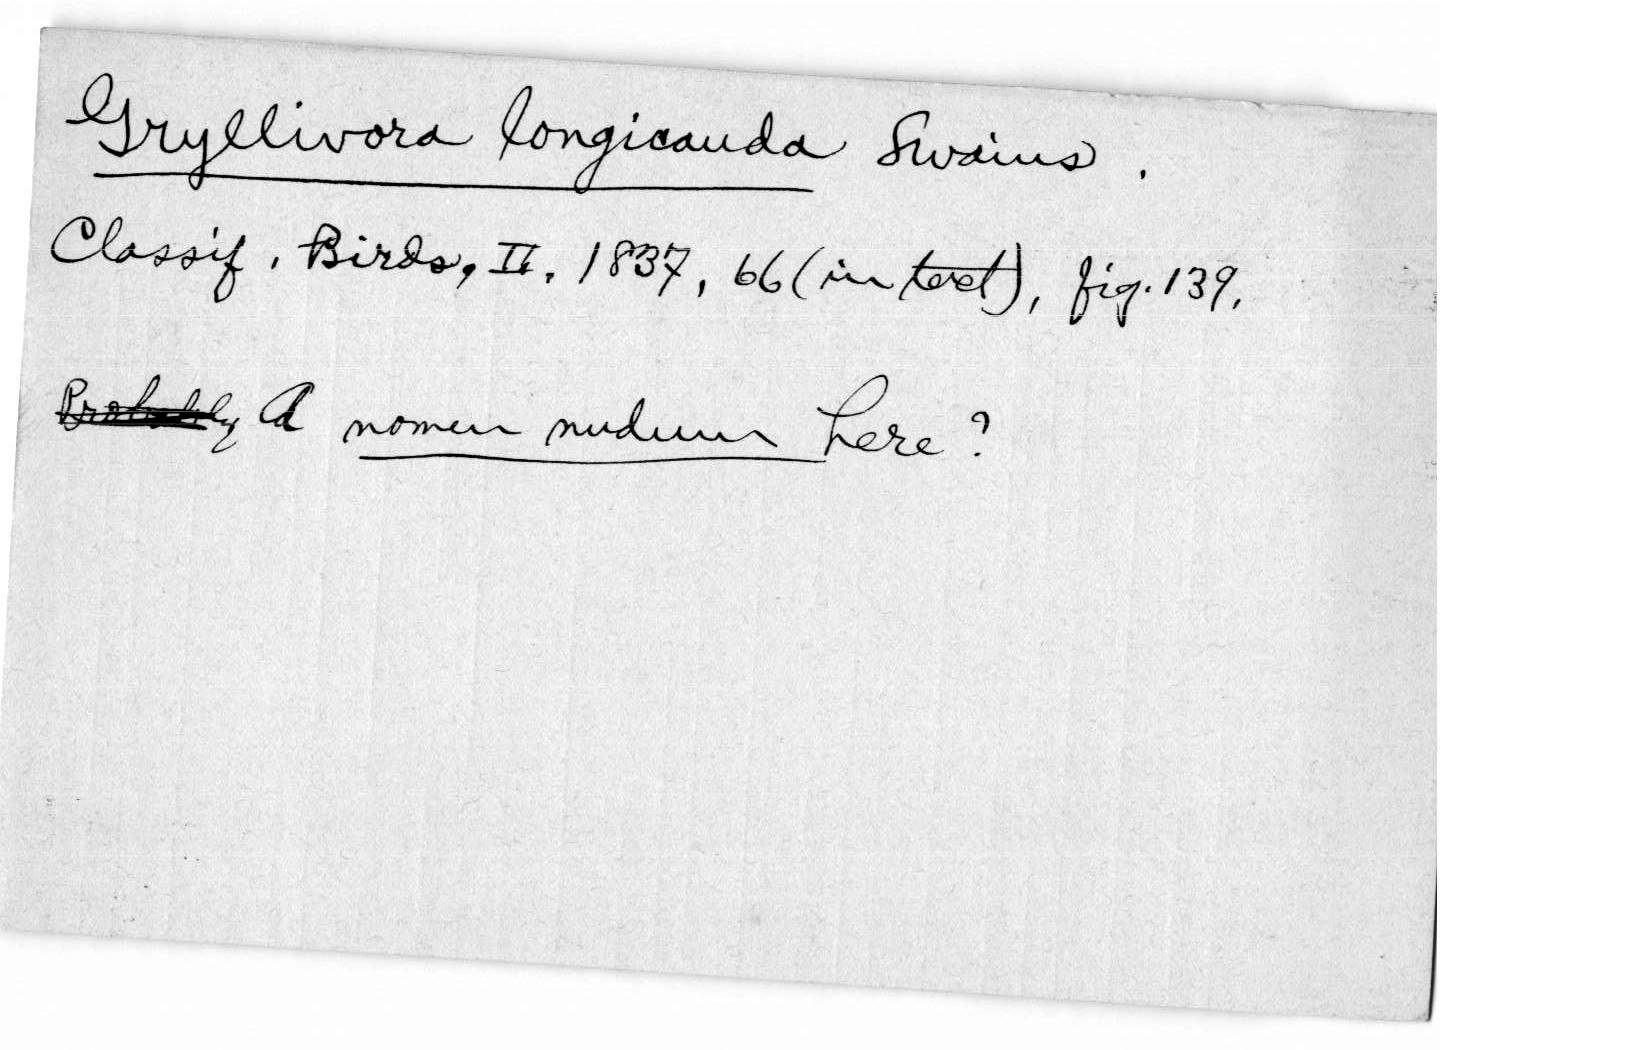 Gryllivora longicauda Swains.
Classif. Birds, II, 1837, 66 (in text), fig. 139.
Probably A nomen nudum here?